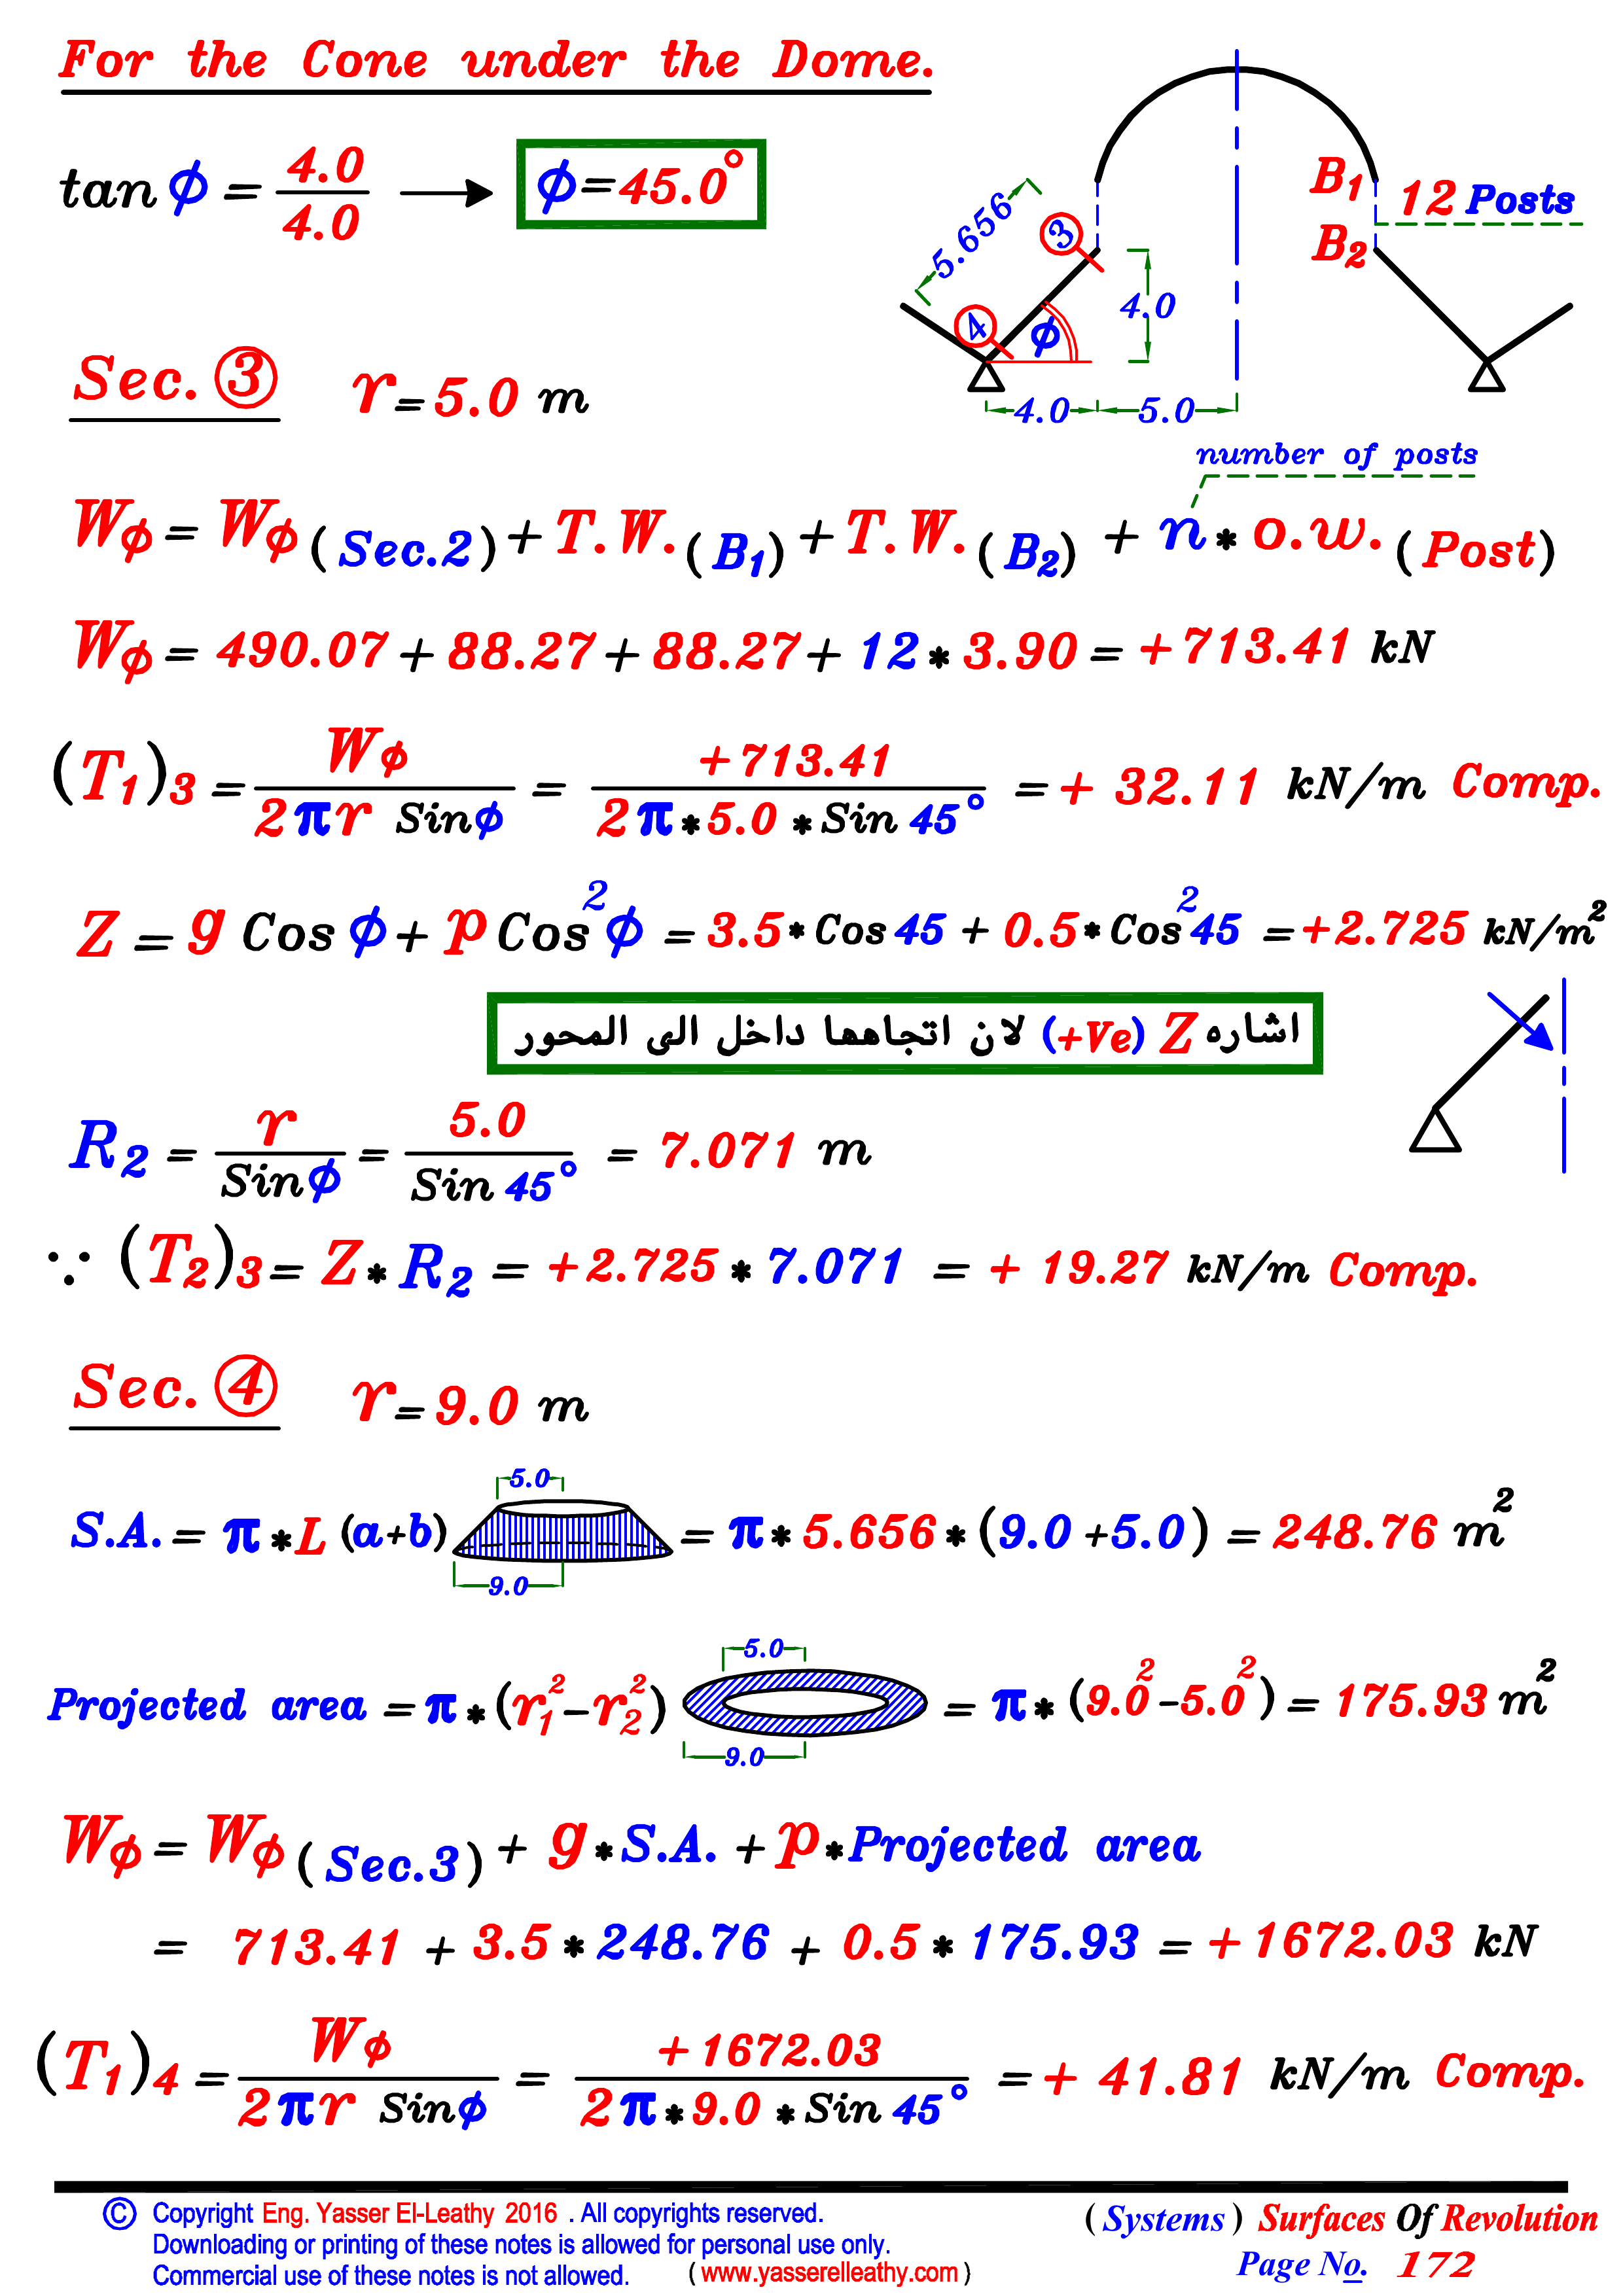 For the Cone under the Dome.
tan ϕ = 4.0 / 4.0 → ϕ = 45.0°
B1 12 Posts
B2
5.656
3
4
ϕ
4.0
4.0 5.0
Sec. ③ r = 5.0 m
number of posts
Wϕ = Wϕ (Sec.2) + T.W. (B1) + T.W. (B2) + n * o.w. (Post)
Wϕ = 490.07 + 88.27 + 88.27 + 12 * 3.90 = +713.41 kN
(T1)3 = Wϕ / 2πr Sinϕ = +713.41 / 2π * 5.0 * Sin 45° = + 32.11 kN/m Comp.
Z = g Cos ϕ + p Cos² ϕ = 3.5 * Cos 45 + 0.5 * Cos² 45 = +2.725 kN/m²
اشاره Z (+Ve) لان اتجاهها داخل الى المحور
R2 = r / Sinϕ = 5.0 / Sin 45° = 7.071 m
∵ (T2)3 = Z * R2 = +2.725 * 7.071 = + 19.27 kN/m Comp.
Sec. ④ r = 9.0 m
5.0
S.A. = π * L (a+b) = π * 5.656 * (9.0 + 5.0) = 248.76 m²
9.0
5.0
Projected area = π * (r1² - r2²) = π * (9.0² - 5.0²) = 175.93 m²
9.0
Wϕ = Wϕ (Sec.3) + g * S.A. + p * Projected area
= 713.41 + 3.5 * 248.76 + 0.5 * 175.93 = +1672.03 kN
(T1)4 = Wϕ / 2πr Sinϕ = +1672.03 / 2π * 9.0 * Sin 45° = + 41.81 kN/m Comp.
© Copyright Eng. Yasser El-Leathy 2016 . All copyrights reserved.
Downloading or printing of these notes is allowed for personal use only.
Commercial use of these notes is not allowed. ( www.yasserelleathy.com )
(Systems) Surfaces Of Revolution
Page No. 172